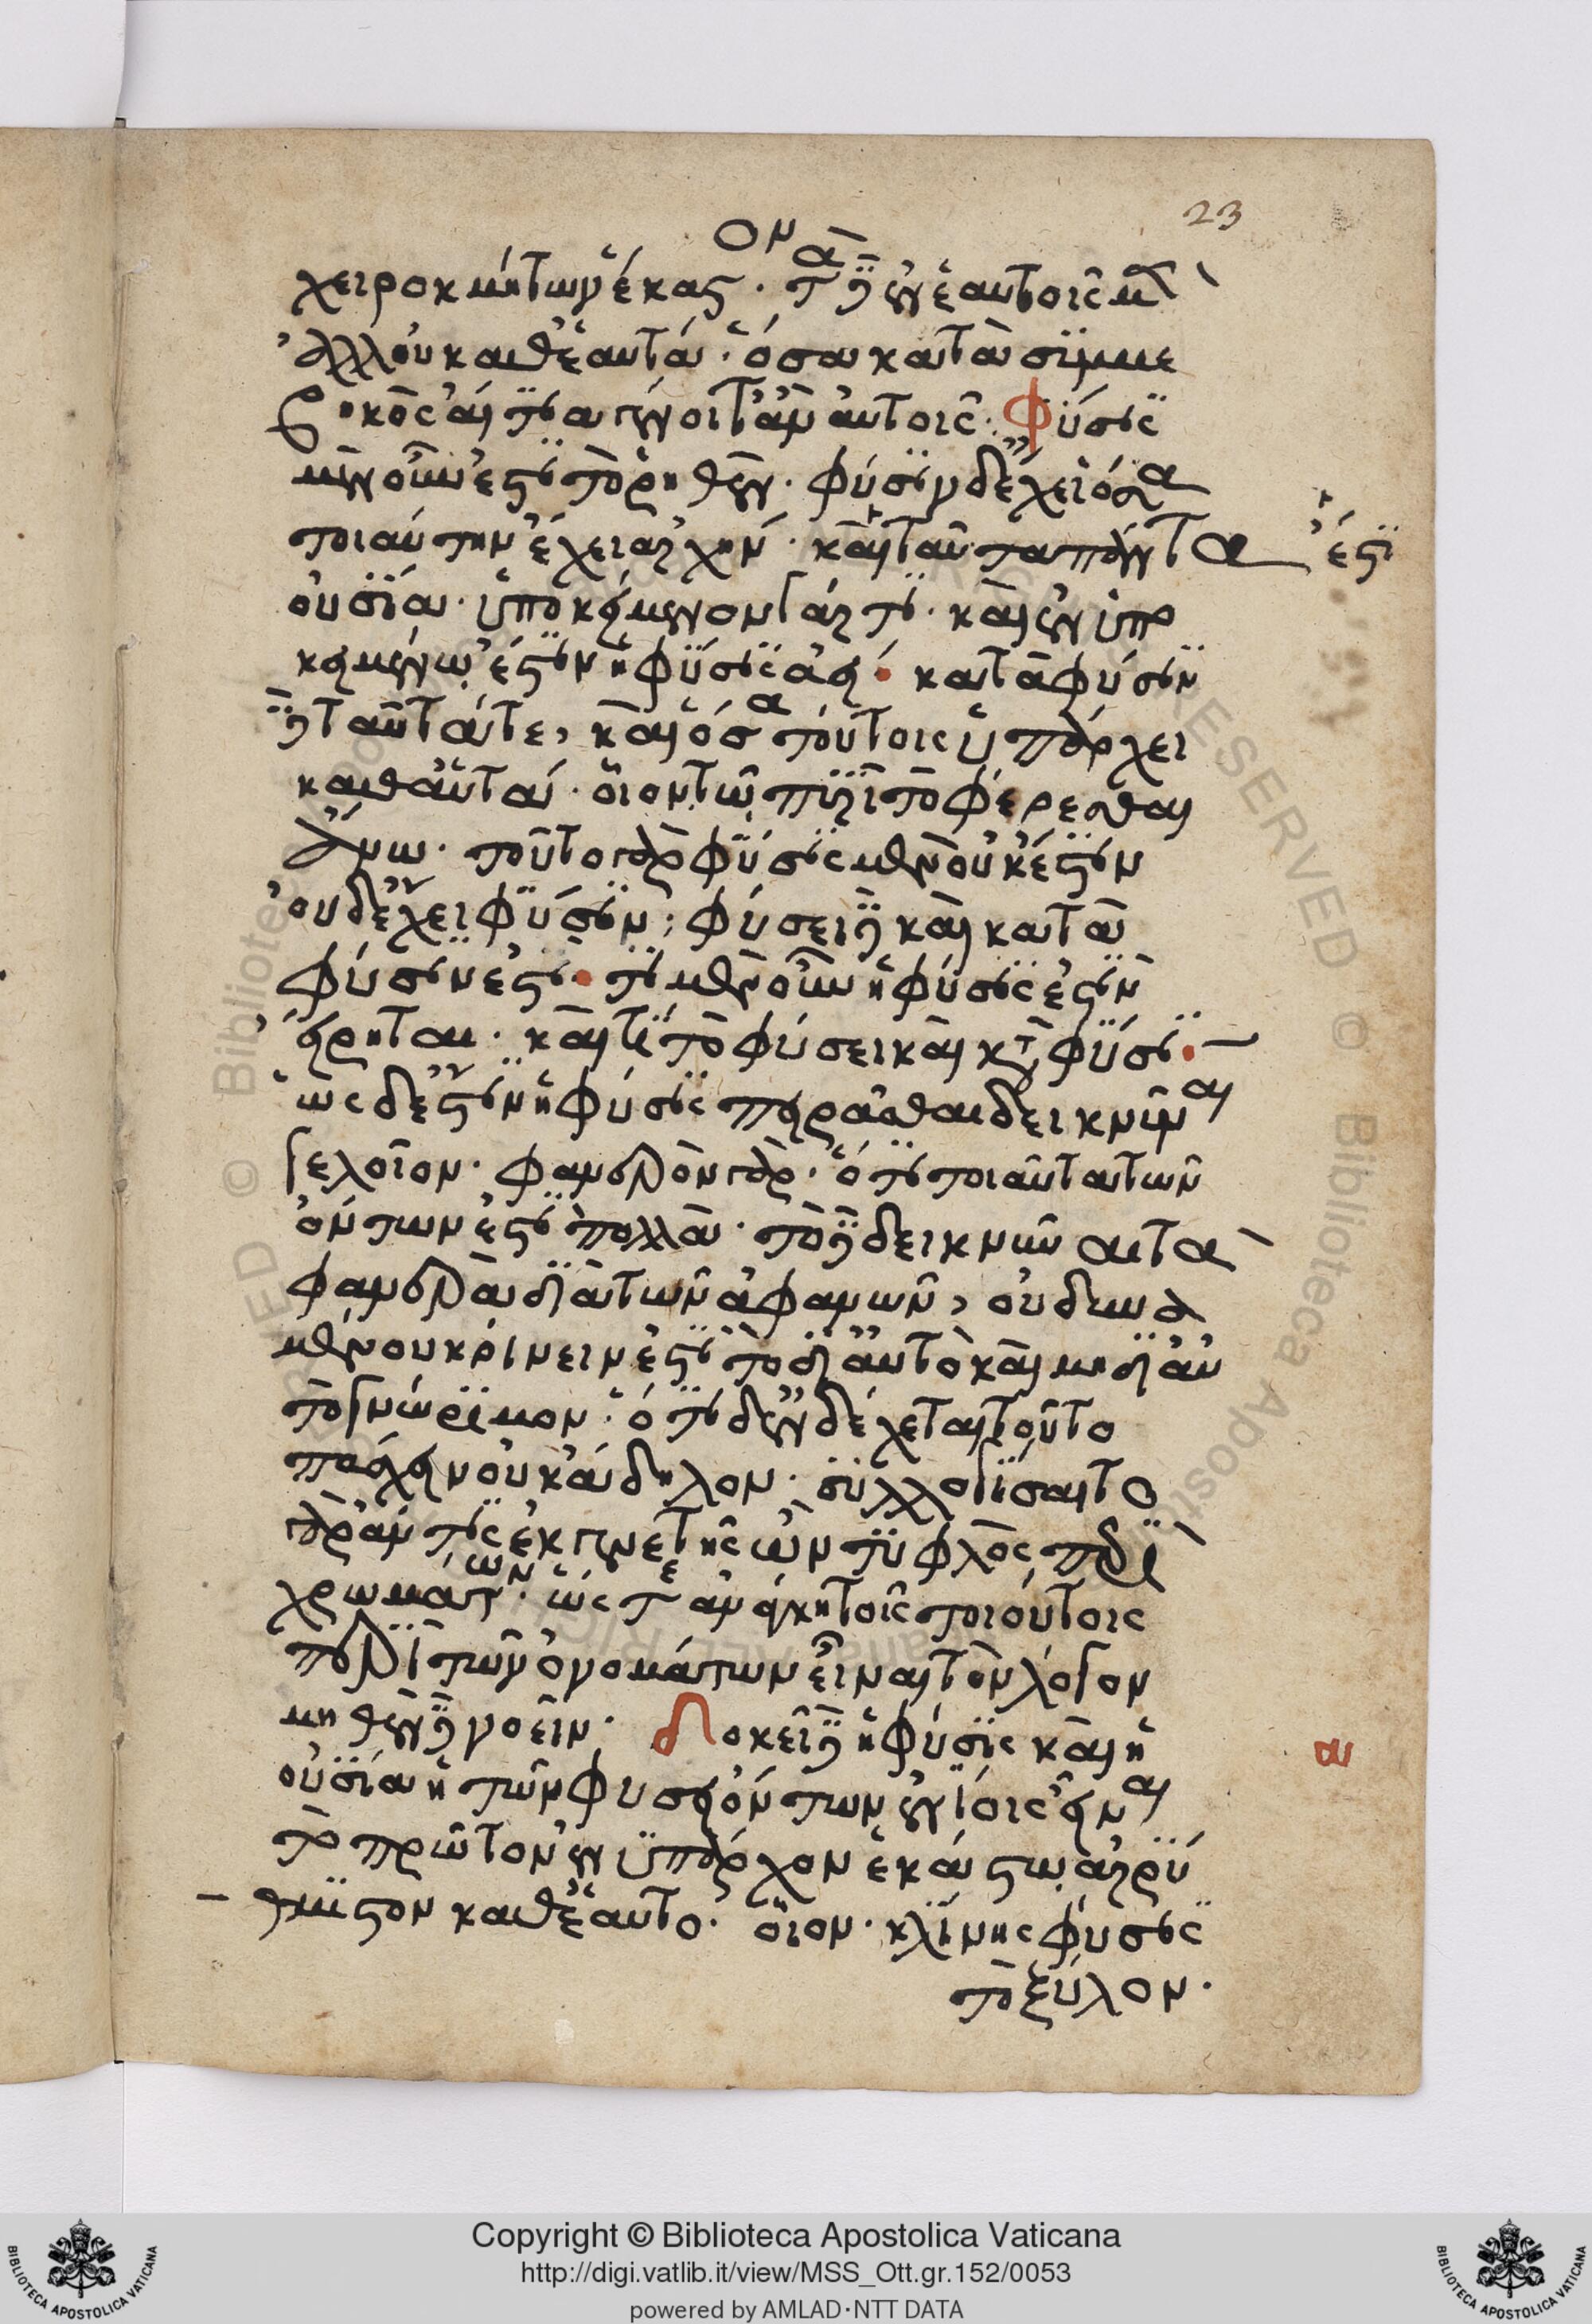 23
χειροκμήτων ἕκαστον. τὰ δ' ἐν ἑαυτοῖς μὲν
ἀλλ' οὐ καθ' ἑαυτά. ὅσα κατὰ συμβε
βηκὸς αἴτια γένοιτ' ἂν αὐτοῖς. Φύσις
μὲν οὖν ἐστι τὸ ῥηθέν. φύσιν δ' ἔχει ὅσα
τοιαύτην ἔχει ἀρχήν. καὶ ταῦτα πάντα ἐστὶ
οὐσία. ὑποκείμενον γάρ τι. καὶ ἐν ὑπο
κειμένῳ ἐστὶν ἡ φύσις ἀεί. κατὰ φύσιν
δὲ ταῦτά τε, καὶ ὅσα τούτοις ὑπάρχει
καθ' αὑτά. οἷον τῷ πυρὶ τὸ φέρεσθαι
ἄνω. τοῦτο γὰρ φύσις μὲν οὐκ ἔστιν
οὐδ' ἔχει φύσιν; φύσει δὲ καὶ κατὰ
φύσιν ἐστί. τί μὲν οὖν ἡ φύσις ἐστὶν
εἴρηται. καὶ τί τὸ φύσει καὶ κατὰ φύσιν.
ὡς δ' ἔστιν ἡ φύσις πειρᾶσθαι δεικνύναι
γελοῖον. φανερὸν γάρ. ὅτι τοιαῦτα τῶν
ὄντων ἐστὶ πολλά. τὸ δὲ δεικνύναι τὰ
φανερὰ διὰ τῶν ἀφανῶν, οὐ δυνα
μένου κρίνειν ἐστὶ τὸ δι' αὑτὸ καὶ μὴ δι' αὑ
τὸ γνώριμον. ὅτι δ' ἐνδέχεται τοῦτο
πάσχειν οὐκ ἄδηλον. συλλογίσαιτο
γὰρ ἄν τις ἐκ γενετῆς ὢν τυφλὸς περὶ
χρωμάτων. ὥστε ἀνάγκη τοῖς τοιούτοις
περὶ τῶν ὀνομάτων εἶναι τὸν λόγον
μηθὲν δὲ νοεῖν. Δοκεῖ δὲ ἡ φύσις καὶ ἡ
α
οὐσία ἡ τῶν φύσει ὄντων ἐνίοις εἶναι
τὸ πρῶτον ἐνυπάρχον ἑκάστῳ ἀρρύ
θμιστον καθ' ἑαυτό. οἷον. κλίνης φύσις
τὸ ξύλον.
Copyright © Biblioteca Apostolica Vaticana
http://digi.vatlib.it/view/MSS_Ott.gr.152/0053
powered by AMLAD·NTT DATA